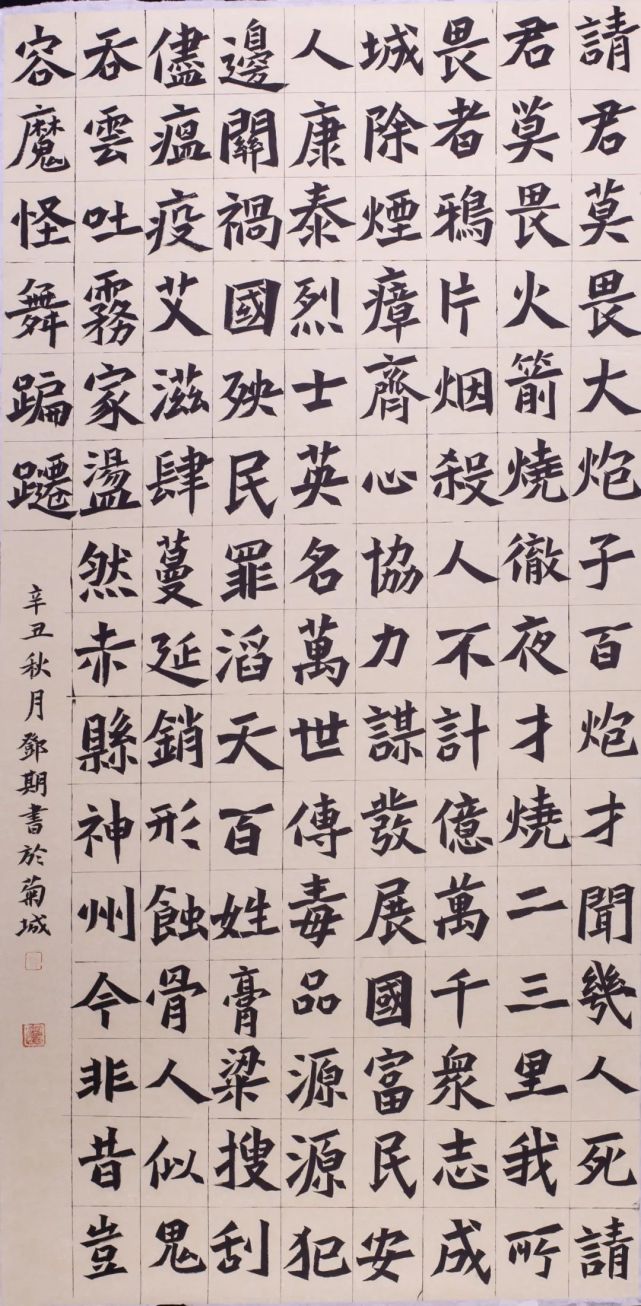 請君莫畏大炮子百炮才聞幾人死請
君莫畏火箭燒徹夜才燒二三里我所
畏者鴉片烟殺人不計億萬千衆志成
城除煙瘴齊心協力謀發展國富民安
人康泰烈士英名萬世傳毒品源源犯
邊關禍國殃民罪滔天百姓膏粱搜刮
儘瘟疫艾滋肆蔓延銷形蝕骨人似鬼
吞雲吐霧家盪然赤縣神州今非昔豈
容魔怪舞蹁躚
辛丑秋月鄧期書於菊城